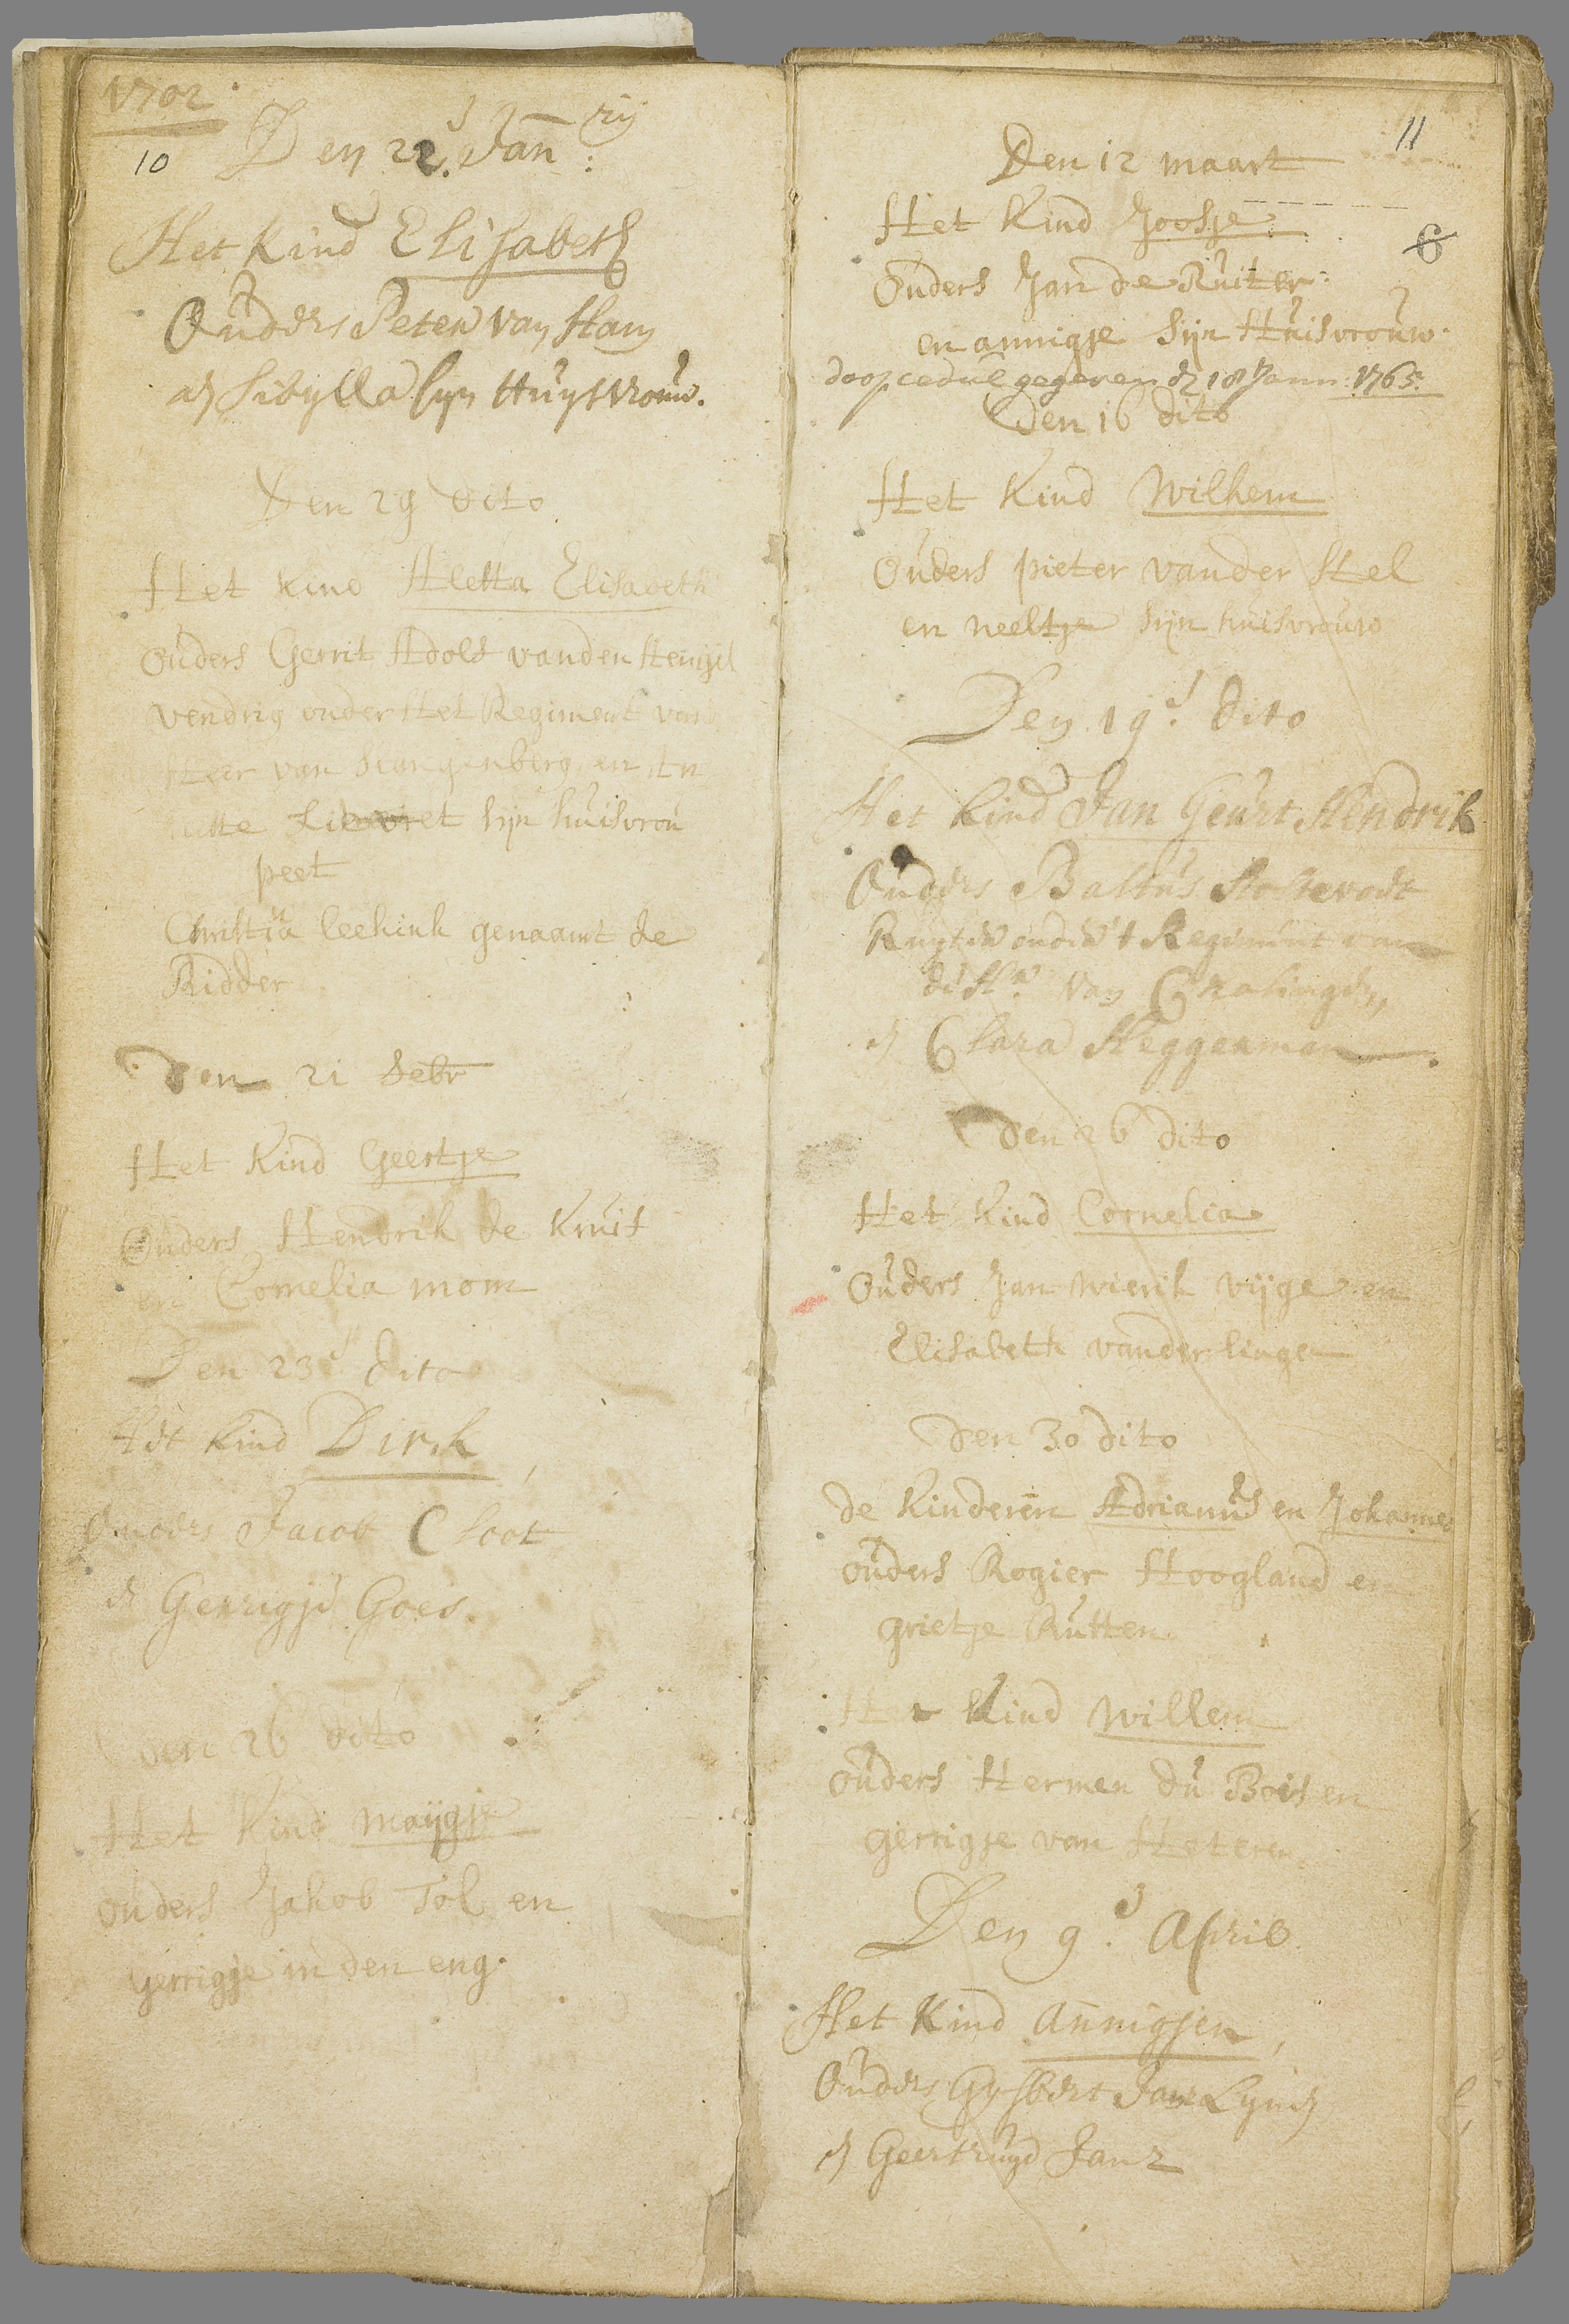 1702
10
Den 22.d Jan:rij
Het Kind Elisabeth
Ouders Peter van Ham
en Sibylla syn Huysvrouw.
Den 29 dito
Het kind Aletta Elisabeth
Ouders Gerrit Adolf vanden Hengel
vendrig onder Het Regiment van
Heer van Slangenberg en
sijn huisvrou
peet
Christina leekink genaamt de
Ridder
Den 21 Febr
Het Kind Geertje
Ouders Hendrik de Kruif
en Cornelia mom
Den 23d dito
Het Kind Dirk
Ouders Jacob Cloot
en Gerrigje Goes.
den 26 dito
Het Kind maijgje
ouders Jakob Tol en
gerrigje in den eng.
11
Den 12 maart
Het Kind Joosje
6
Ouders Jan de Ruiter
en annigje Sijn Huisvrouw.
doopcedul gegeven den 18 Jann: 1765.
Den 16 dito
Het Kind Wilhem
Ouders pieter vander Stel
en neeltje sijn huisvrouw
Den 19d. dito
Het Kind Jan Geurt Hendrik
Ouders Baltus
Ruyter onder 't Regiment van
de Hr. van
en Clara Heggeman.
Den 26 dito
Het Kind Cornelia
Ouders Jan wierik vijge en
Elisabeth vander linge
Den 30 dito
de Kinderen Adrianus en Johannes
ouders Rogier Hoogland en
grietje Rutten
Het Kind Willem
ouders Hermen du Bois en
gerrigje van Heteren
Den 9d. April
Het Kind Annigjen,
Ouders Gysbert Jan
en Geertruyd Janz